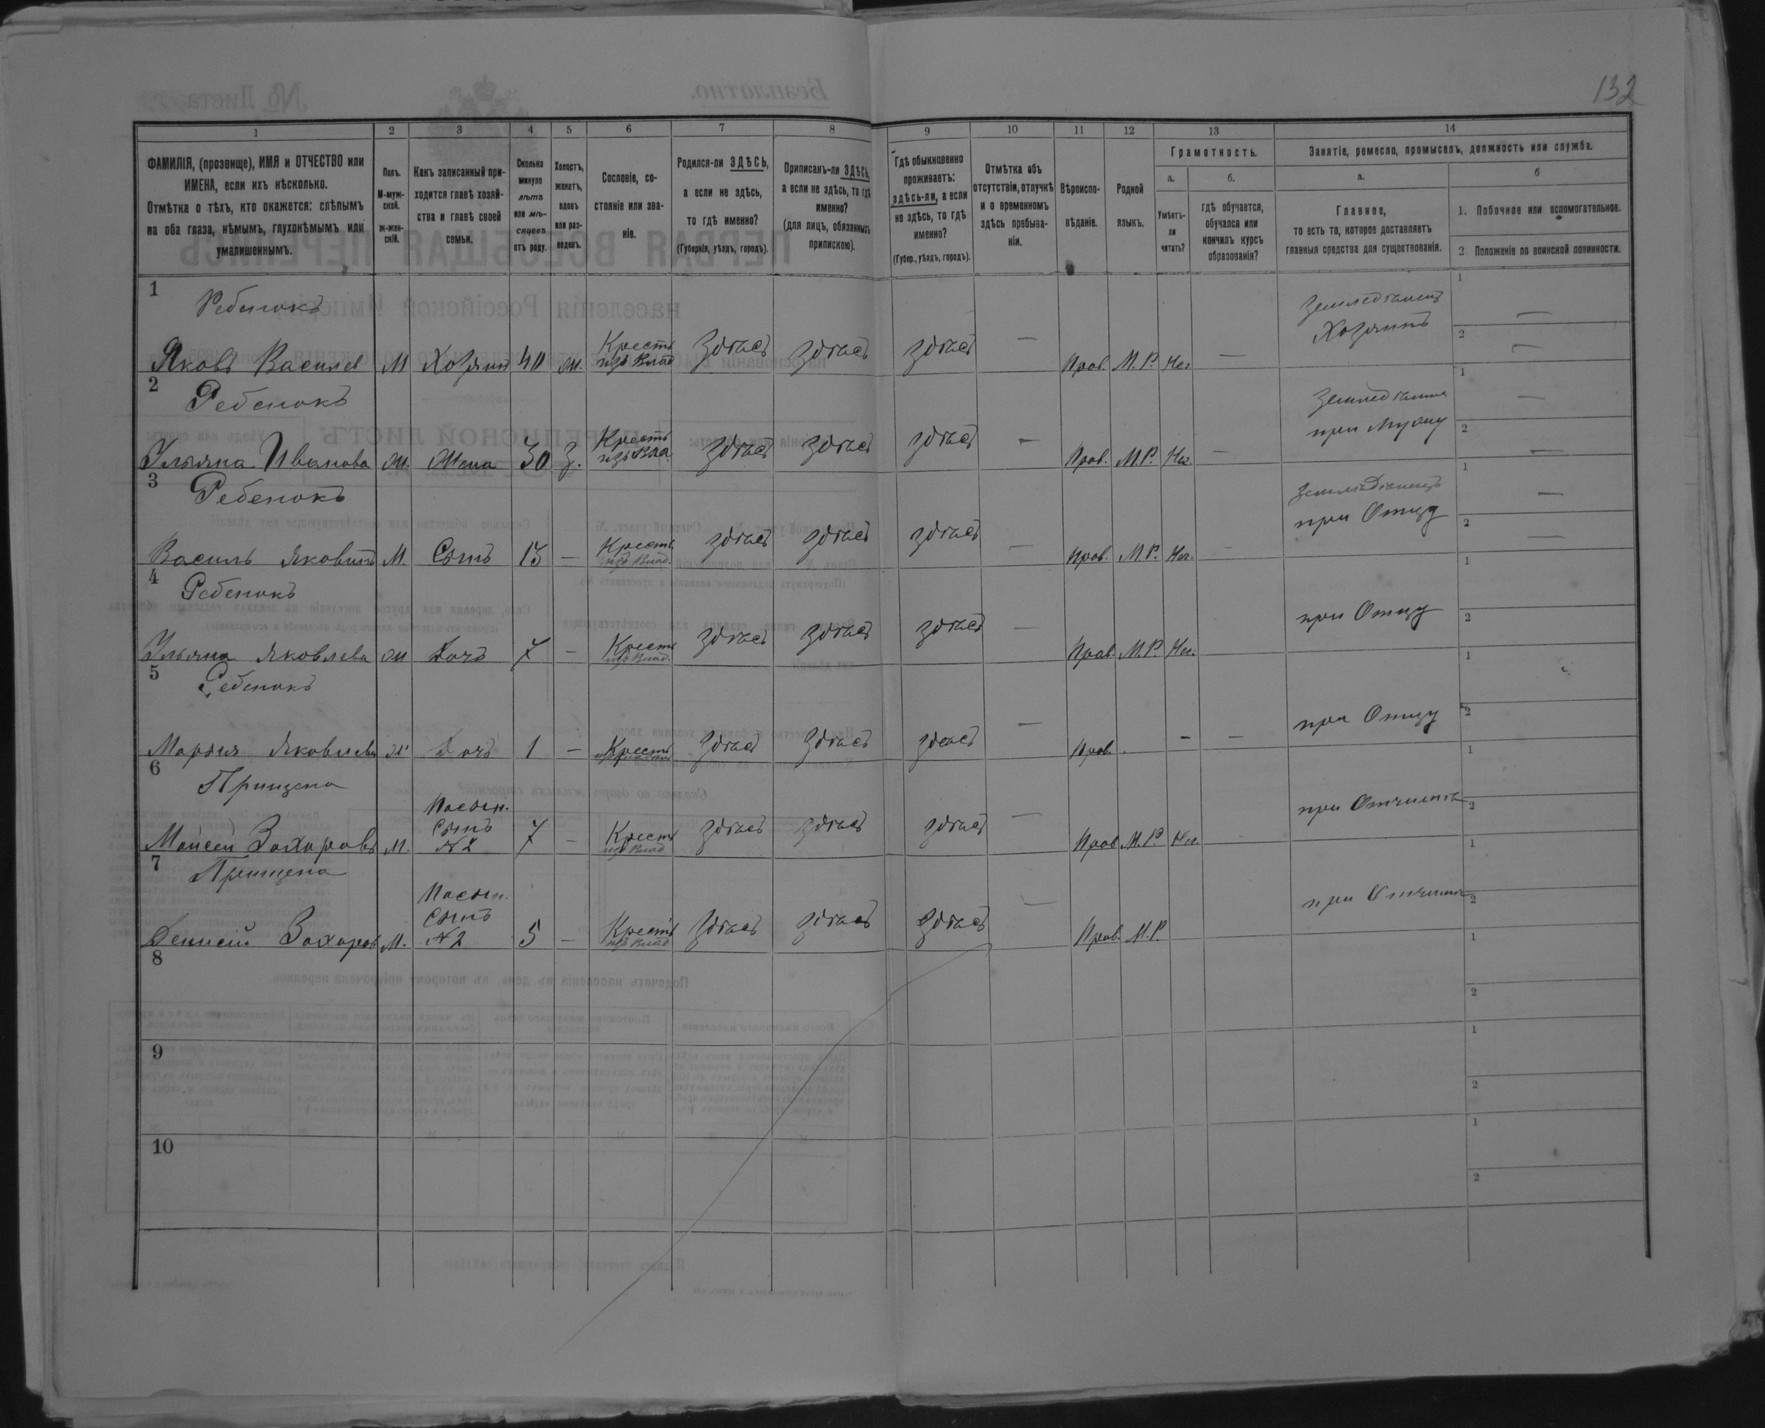 132
1 2 3 4 5 6 7 8 9 10 11 12 13 14
ФАМИЛІЯ, (прозвище), ИМЯ и ОТЧЕСТВО или
ИМЕНА, если ихъ нѣсколько.
Отмѣтка о тѣхъ, кто окажется: слѣпымъ
на оба глаза, нѣмымъ, глухонѣмымъ или
умалишеннымъ.
Полъ.
М-муж-
ской.
ж-жен-
скій.
Какъ записанный при-
ходится главѣ хозяй-
ства и главѣ своей
семьи.
Сколько
минуло
лѣтъ
или мѣ-
сяцевъ
отъ роду.
Холостъ,
женатъ,
вдовъ
или раз-
веденъ.
Сословіе, со-
стояніе или зва-
ніе.
Родился-ли ЗДѢСЬ,
а если не здѣсь,
то гдѣ именно?
(Губернія, уѣздъ, городъ).
Приписанъ-ли ЗДѢСЬ,
а если не здѣсь, то гдѣ
именно?
(для лицъ, обязанныхъ
припискою).
Гдѣ обыкновенно
проживаетъ:
здѣсь-ли, а если
не здѣсь, то гдѣ
именно?
(Губер., уѣздъ, городъ).
Отмѣтка объ
отсутствіи, отлучкѣ
и о временномъ
здѣсь пребыва-
ніи.
Вѣроиспо-
вѣданіе.
Родной
языкъ.
Грамотность.
а.
Умѣетъ-
ли
читать?
б.
гдѣ обучается,
обучался или
кончилъ курсъ
образованія?
Занятіе, ремесло, промыселъ, должность или служба.
а.
Главное,
то есть то, которое доставляетъ
главныя средства для существованія.
б
1. Побочное или вспомогательное.
2 Положеніе по воинской повинности.
1 Ребенокъ
Яковъ Василев М Хозяин 40 ж. Крест. изъ влад здѣсь здѣсь здѣсь — Прав. М.Р. Нет — Земледѣлецъ Хозяинъ 1 — 2 —
2 Ребенокъ
Ульяна Иванова ж. Жена 30 з. Крест. изъ вла. здѣсь здѣсь здѣсь — Прав. М.Р. Нет — при Мужу 1 — 2 —
3 Ребенокъ
Василь Яковлев М. Сынъ 13 — Крест. изъ влад. здѣсь здѣсь здѣсь — Прав. М.Р. Нет. — Земледѣлецъ при Отцу 1 — 2 —
4 Ребенокъ
Ульяна Яковлева ж Дочь 7 — Крест изъ влад. здѣсь здѣсь здѣсь — Прав М.Р. Нет. при Отцу 1 2
5 Ребенокъ
Марфия Яковлева ж Дочь 1 — Крест здѣсь здѣсь здѣсь — Прав. — — при Отцу 1 2
6 Прищепа
Мойсей Захаровъ М. Пасын. Сынъ №2 7 — Крест изъ влад здѣсь здѣсь здѣсь — Прав М.Р. Нет. при Отчима 1 2
7 Прищепа
Денисій Захаров М. Пасын. Сынъ №2 5 — Крест изъ влад здѣсь здѣсь здѣсь — Прав. М.Р. при Отчима 1 2
8 1 2
9 1 2
10 1 2